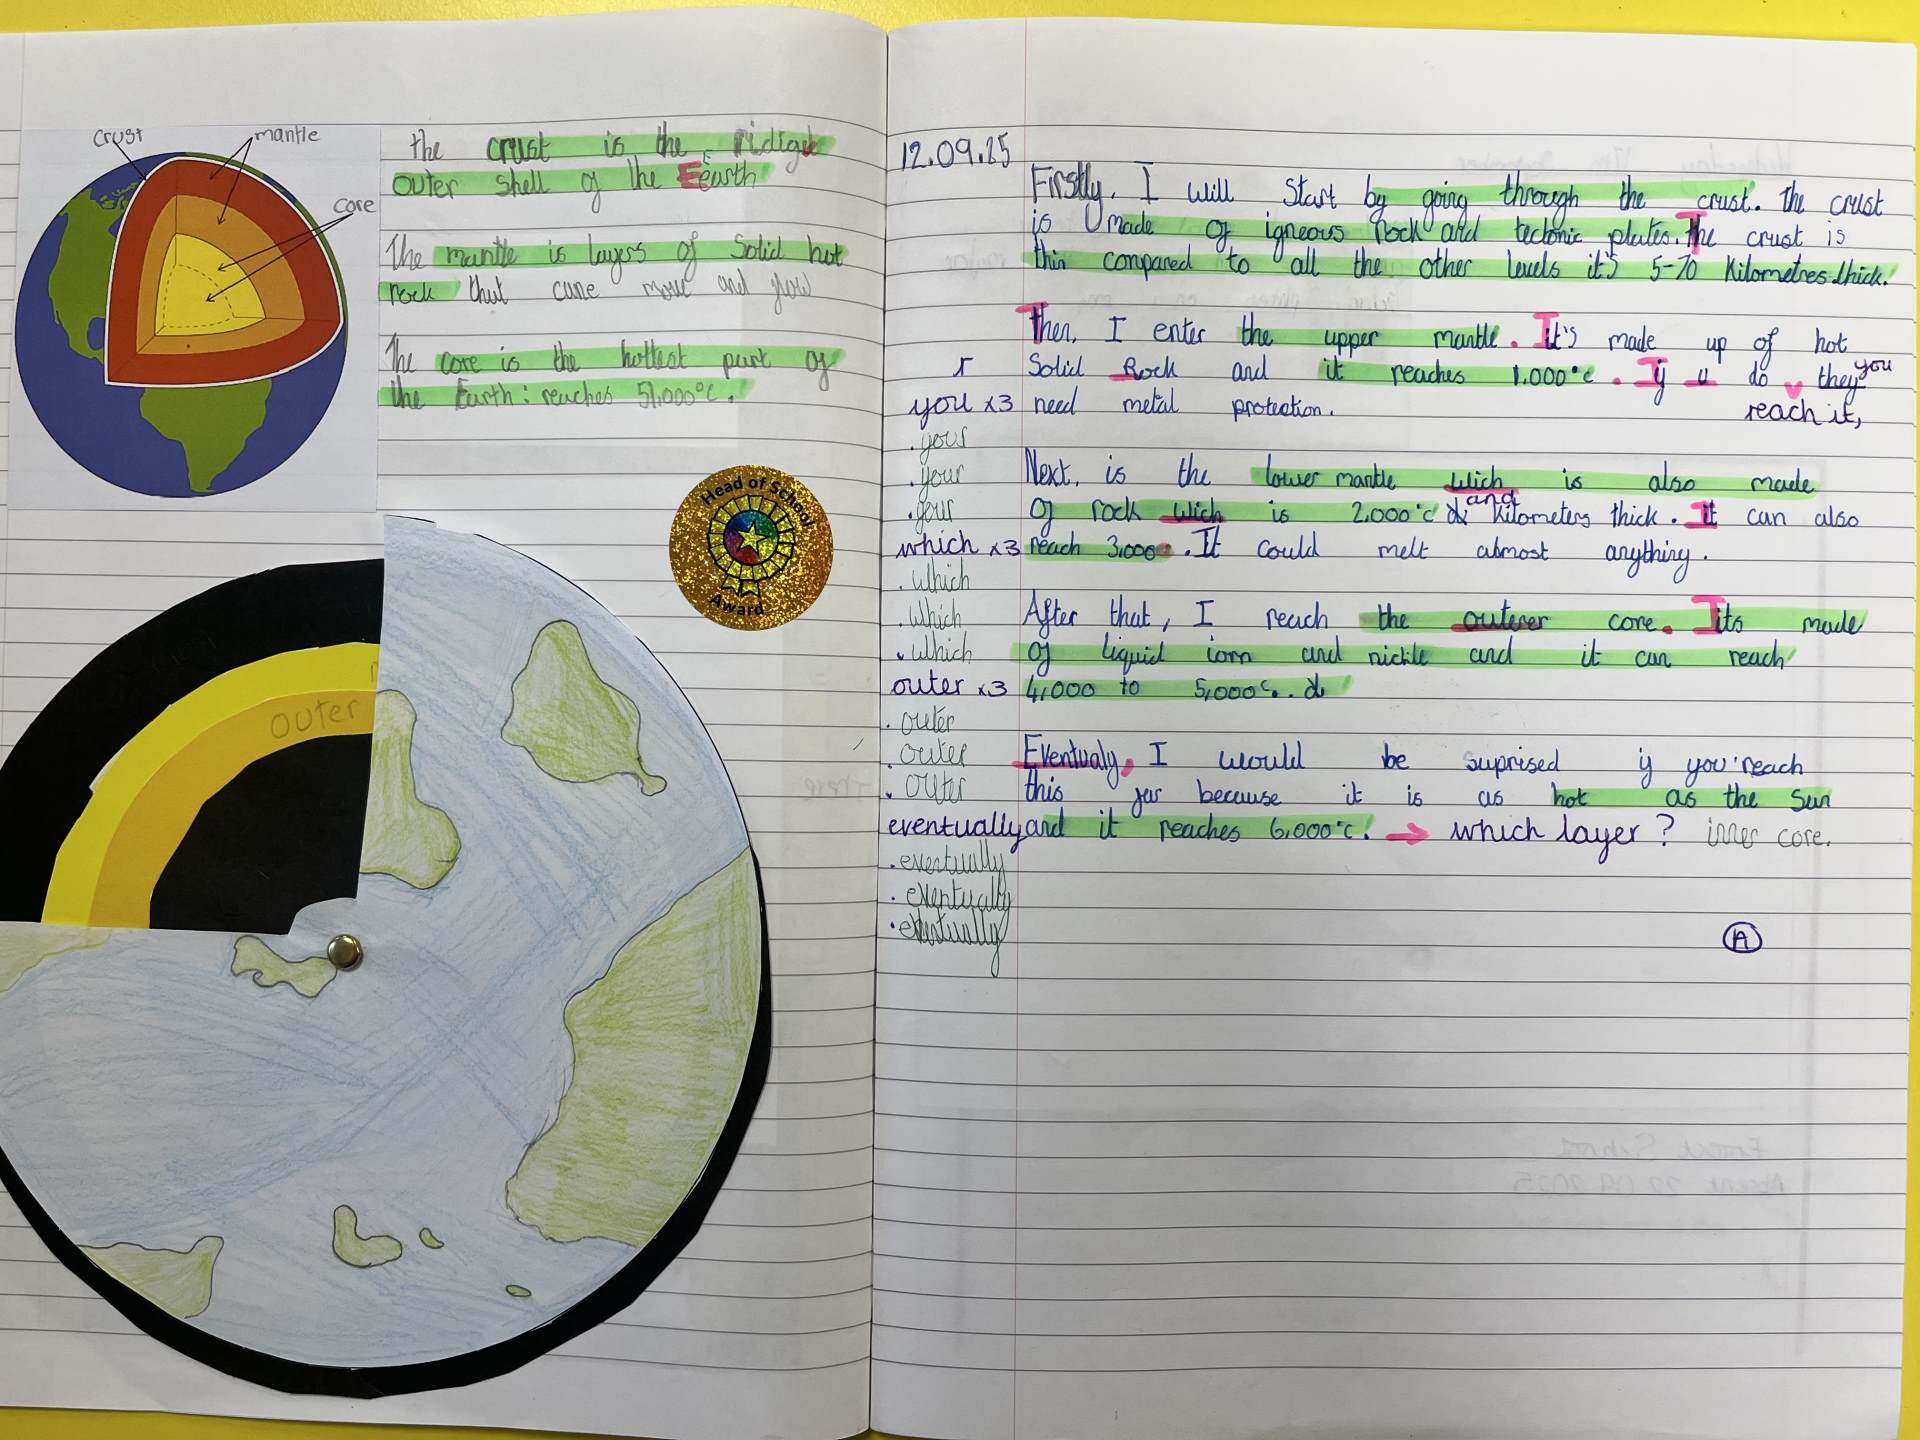 crust
mantle
core
the crust is the ridigde
outer shell of the Eearth
The mantle is layers of Solid hot
rock that cane move and flow
The core is the hottest part of
the Earth: reaches 51,000°c.
Head of School
Award
outer
12.09.25
Firstly, I will Start by going through the crust. the crust
is made of igneous rock and tectonic plates. The crust is
thin compared to all the other levels it's 5-70 Kilometres thick.
Then, I enter the upper mantle. It's made up of hot
r
Solid Rock and it reaches 1.000°c. If u do they you
reach it,
you x3
need metal protection.
. yous
. your
. your
Next, is the lower mantle wich is also made
of rock wich is 2,000°c and Kilometers thick. It can also
which x3
reach 3,000. It could melt almost anything.
. which
. which
. which
After that, I reach the outerer core. Its made
of liquid iorn and nickle and it can reach
outer x3
4,000 to 5,000c.
. outer
. outer
. outer
Eventualy, I would be suprised if you reach
this far because it is as hot as the Sun
eventually
and it reaches 6,000°c. → which layer? inner core.
. eventually
. eventually
. eventually
A